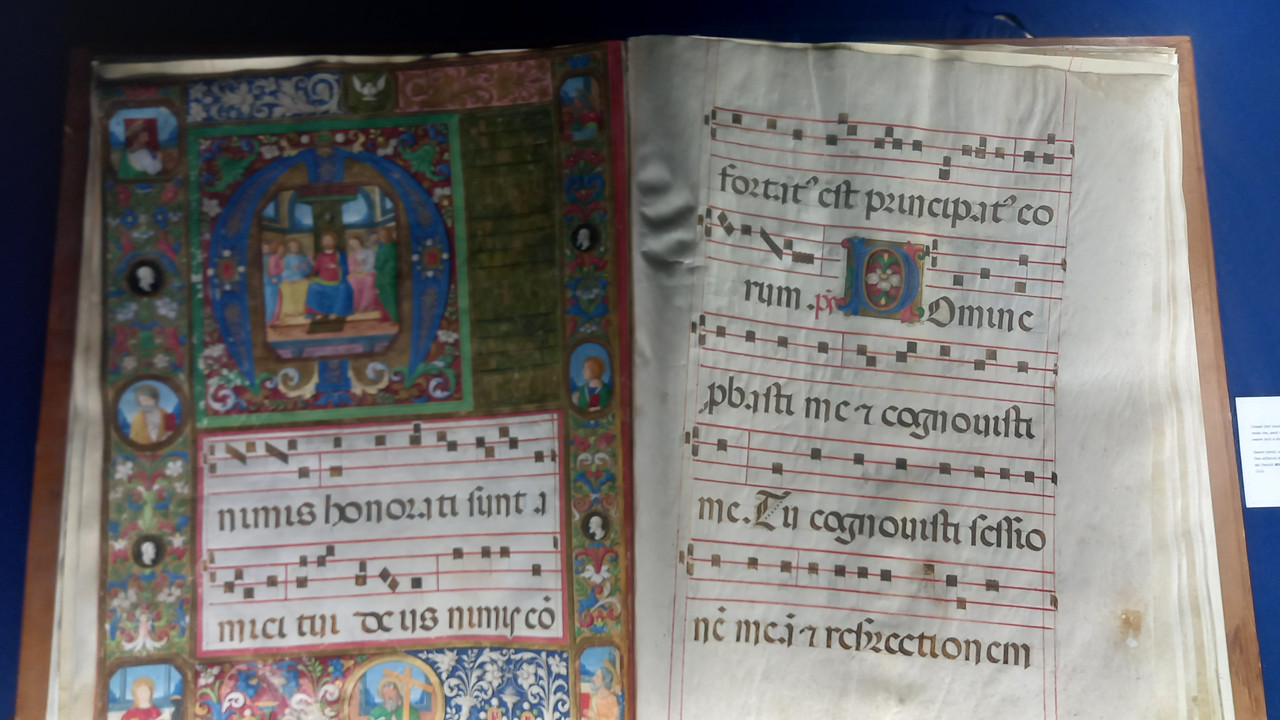 nimis honorati sunt a
mici tui deus nimis cō
fortat⁹ est principat⁹ co
rum. ps Domine
ꝓbasti me ⁊ cognouisti
me. Tu cognouisti sessio
nē meā ⁊ resurectionem